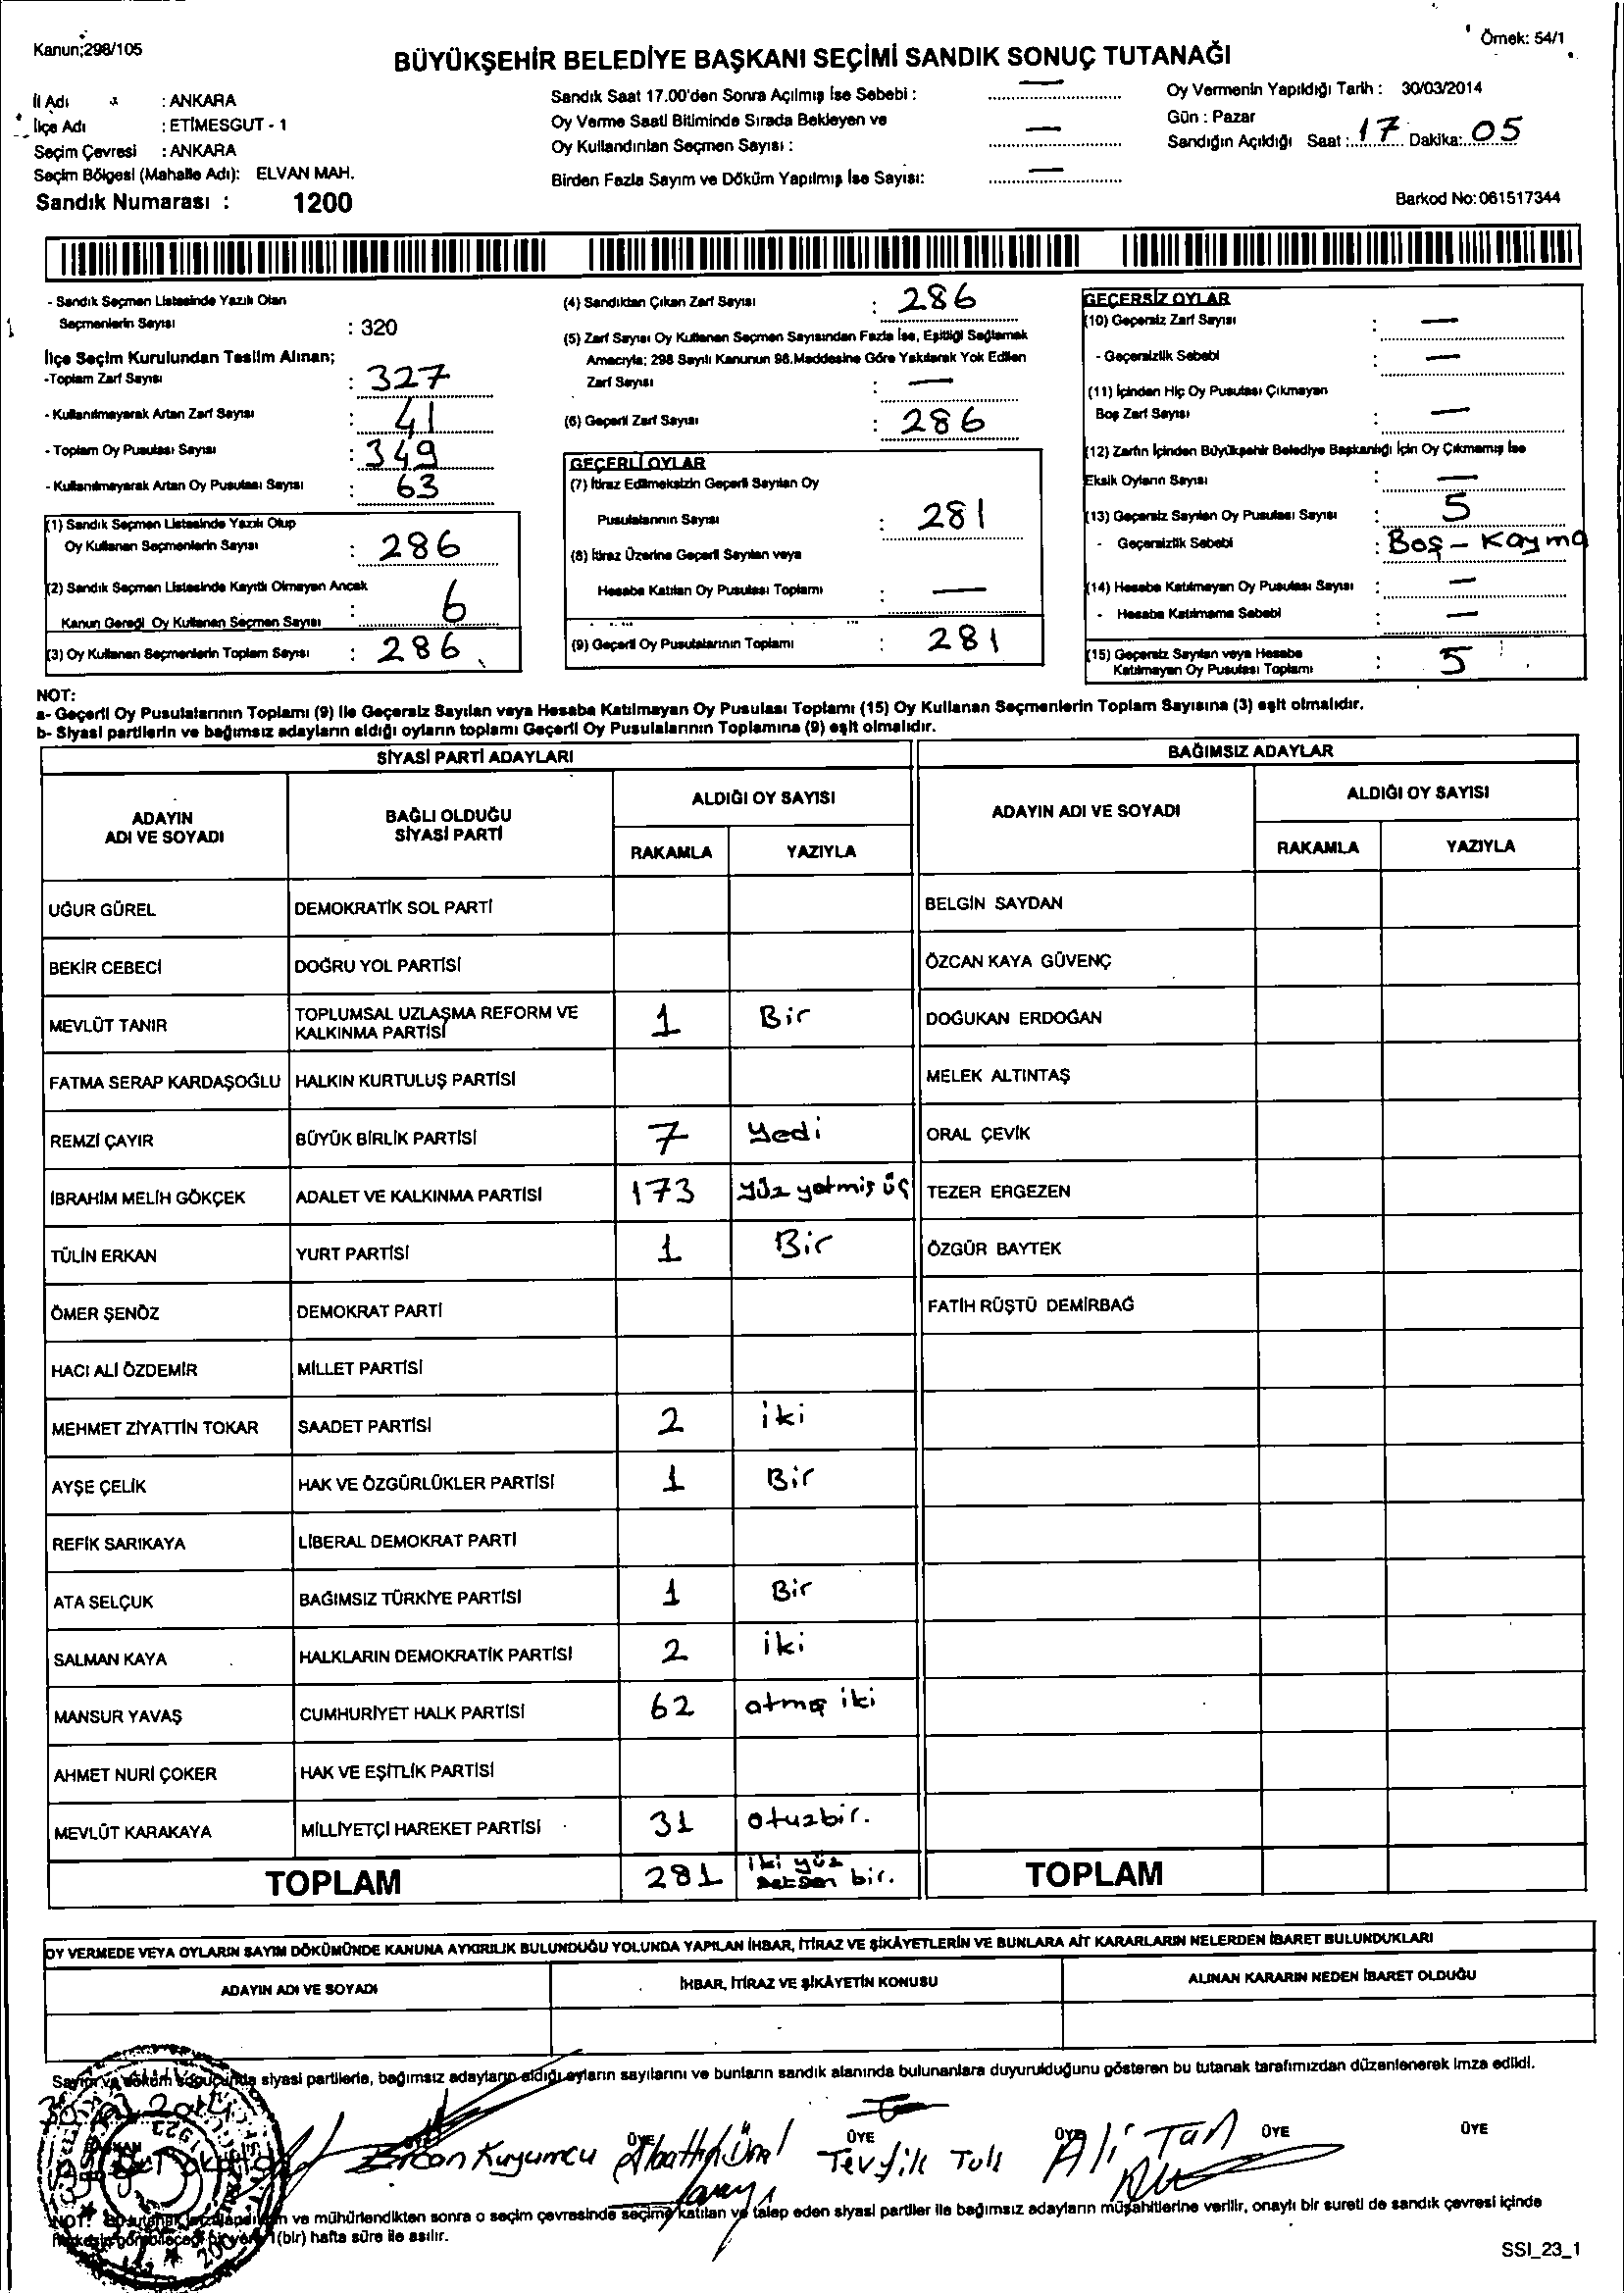 Kanun;298/105
Örnek: 54/1
BÜYÜKŞEHİR BELEDİYE BAŞKANI SEÇİMİ SANDIK SONUÇ TUTANAĞI
İl Adı : ANKARA
İlçe Adı : ETİMESGUT - 1
Seçim Çevresi : ANKARA
Seçim Bölgesi (Mahalle Adı): ELVAN MAH.
Sandık Numarası : 1200
Sandık Saat 17.00'den Sonra Açılmış İse Sebebi : —
Oy Verme Saati Bitiminde Sırada Bekleyen ve
Oy Kullandırılan Seçmen Sayısı : —
Birden Fazla Sayım ve Döküm Yapılmış İse Sayısı: —
Oy Vermenin Yapıldığı Tarih : 30/03/2014
Gün : Pazar
Sandığın Açıldığı Saat : 17 Dakika: 05
Barkod No:061517344
- Sandık Seçmen Listesinde Yazılı Olan
Seçmenlerin Sayısı : 320
İlçe Seçim Kurulundan Teslim Alınan;
-Toplam Zarf Sayısı : 327
- Kullanılmayarak Artan Zarf Sayısı : 41
- Toplam Oy Pusulası Sayısı : 349
- Kullanılmayarak Artan Oy Pusulası Sayısı : 63
(1) Sandık Seçmen Listesinde Yazılı Olup
Oy Kullanan Seçmenlerin Sayısı : 286
(2) Sandık Seçmen Listesinde Kayıtlı Olmayan Ancak
Kanun Gereği Oy Kullanan Seçmen Sayısı : 6
(3) Oy Kullanan Seçmenlerin Toplam Sayısı : 286
(4) Sandıktan Çıkan Zarf Sayısı : 286
(5) Zarf Sayısı Oy Kullanan Seçmen Sayısından Fazla İse, Eşitliği Sağlamak
Amacıyla; 298 Sayılı Kanunun 98.Maddesine Göre Yakılarak Yok Edilen
Zarf Sayısı : —
(6) Geçerli Zarf Sayısı : 286
GEÇERLİ OYLAR
(7) İtiraz Edilmeksizin Geçerli Sayılan Oy
Pusulalarının Sayısı : 281
(8) İtiraz Üzerine Geçerli Sayılan veya
Hesaba Katılan Oy Pusulası Toplamı : —
(9) Geçerli Oy Pusulalarının Toplamı : 281
GEÇERSİZ OYLAR
(10) Geçersiz Zarf Sayısı : —
- Geçersizlik Sebebi : —
(11) İçinden Hiç Oy Pusulası Çıkmayan
Boş Zarf Sayısı : —
(12) Zarfın İçinden Büyükşehir Belediye Başkanlığı İçin Oy Çıkmamış İse
Eksik Oyların Sayısı : —
(13) Geçersiz Sayılan Oy Pusulası Sayısı : 5
- Geçersizlik Sebebi : Boş - Kayma
(14) Hesaba Katılmayan Oy Pusulası Sayısı : —
- Hesaba Katılmama Sebebi : —
(15) Geçersiz Sayılan veya Hesaba
Katılmayan Oy Pusulası Toplamı : 5
NOT:
a- Geçerli Oy Pusulalarının Toplamı (9) ile Geçersiz Sayılan veya Hesaba Katılmayan Oy Pusulası Toplamı (15) Oy Kullanan Seçmenlerin Toplam Sayısına (3) eşit olmalıdır.
b- Siyasi partilerin ve bağımsız adayların aldığı oyların toplamı Geçerli Oy Pusulalarının Toplamına (9) eşit olmalıdır.
SİYASİ PARTİ ADAYLARI
ADAYIN ADI VE SOYADI BAĞLI OLDUĞU SİYASİ PARTİ ALDIĞI OY SAYISI
RAKAMLA YAZIYLA
UĞUR GÜREL DEMOKRATİK SOL PARTİ
BEKİR CEBECİ DOĞRU YOL PARTİSİ
MEVLÜT TANIR TOPLUMSAL UZLAŞMA REFORM VE KALKINMA PARTİSİ 1 Bir
FATMA SERAP KARDAŞOĞLU HALKIN KURTULUŞ PARTİSİ
REMZİ ÇAYIR BÜYÜK BİRLİK PARTİSİ 7 Yedi
İBRAHİM MELİH GÖKÇEK ADALET VE KALKINMA PARTİSİ 173 yüz yetmiş üç
TÜLİN ERKAN YURT PARTİSİ 1 Bir
ÖMER ŞENÖZ DEMOKRAT PARTİ
HACI ALİ ÖZDEMİR MİLLET PARTİSİ
MEHMET ZİYATTİN TOKAR SAADET PARTİSİ 2 iki
AYŞE ÇELİK HAK VE ÖZGÜRLÜKLER PARTİSİ 1 Bir
REFİK SARIKAYA LİBERAL DEMOKRAT PARTİ
ATA SELÇUK BAĞIMSIZ TÜRKİYE PARTİSİ 1 Bir
SALMAN KAYA HALKLARIN DEMOKRATİK PARTİSİ 2 iki
MANSUR YAVAŞ CUMHURİYET HALK PARTİSİ 62 atmış iki
AHMET NURİ ÇOKER HAK VE EŞİTLİK PARTİSİ
MEVLÜT KARAKAYA MİLLİYETÇİ HAREKET PARTİSİ 31 otuzbir.
TOPLAM 281 iki yüz seksen bir.
BAĞIMSIZ ADAYLAR
ADAYIN ADI VE SOYADI ALDIĞI OY SAYISI
RAKAMLA YAZIYLA
BELGİN SAYDAN
ÖZCAN KAYA GÜVENÇ
DOĞUKAN ERDOĞAN
MELEK ALTINTAŞ
ORAL ÇEVİK
TEZER ERGEZEN
ÖZGÜR BAYTEK
FATİH RÜŞTÜ DEMİRBAĞ
TOPLAM
OY VERMEDE VEYA OYLARIN SAYIM DÖKÜMÜNDE KANUNA AYKIRILIK BULUNDUĞU YOLUNDA YAPILAN İHBAR, İTİRAZ VE ŞİKÂYETLERİN VE BUNLARA AİT KARARLARIN NELERDEN İBARET BULUNDUKLARI
ADAYIN ADI VE SOYADI İHBAR, İTİRAZ VE ŞİKÂYETİN KONUSU ALINAN KARARIN NEDEN İBARET OLDUĞU
Sayım ve döküm sonucunda siyasi partilerle, bağımsız adayların aldığı oyların sayılarını ve bunların sandık alanında bulunanlara duyurulduğunu gösteren bu tutanak tarafımızdan düzenlenerek imza edildi.
ÜYE ÜYE ÜYE ÜYE ÜYE
Ercan Kuyumcu Tevfik Ali Tan
ve mühürlendikten sonra o seçim çevresinde seçime katılan ve talep eden siyasi partiler ile bağımsız adayların müşahitlerine verilir, onaylı bir sureti de sandık çevresi içinde
1(bir) hafta süre ile asılır.
SSI_23_1